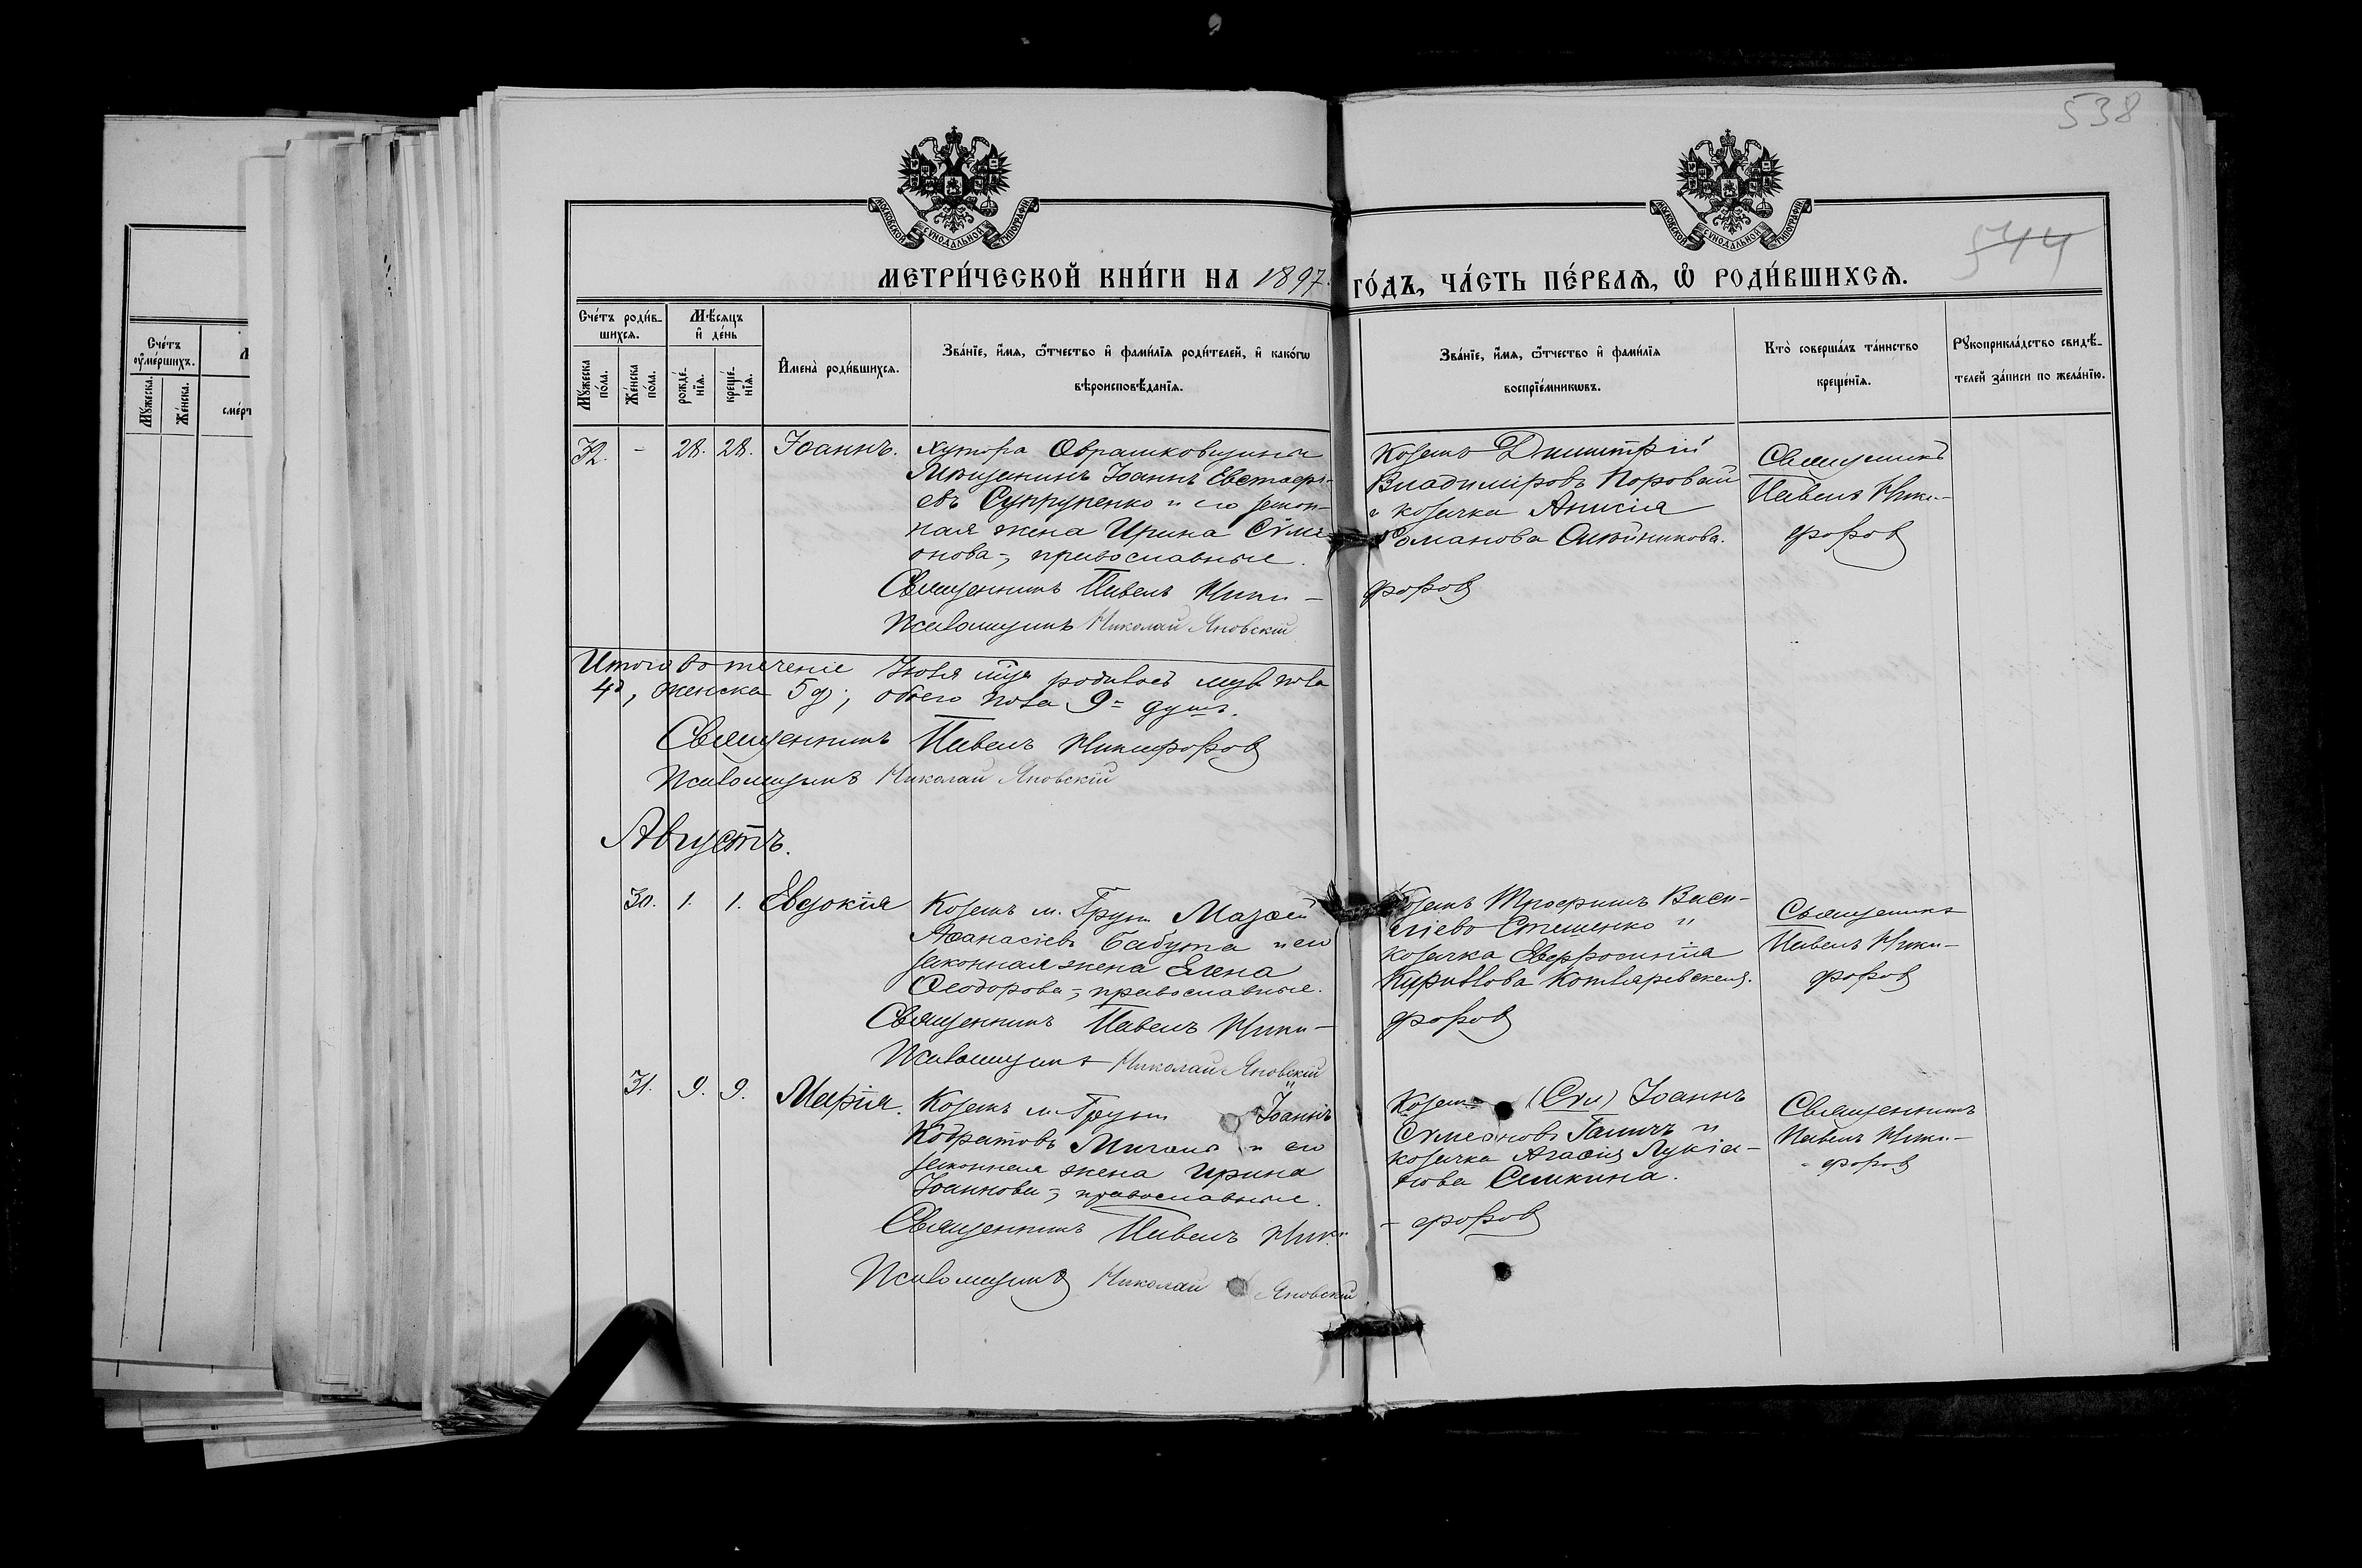 538
544
МОСКОВСКОЙ СѴНОДАЛЬНОЙ ТИПОГРАФІИ
МОСКОВСКОЙ СѴНОДАЛЬНОЙ ТИПОГРАФІИ
МЕТРИ́ЧЕСКОЙ КНИ́ГИ НА 1897 ГО́ДЪ, ЧА́СТЬ ПЕ́РВАѦ, Ѡ РОДИ́ВШИХСѦ.
Сче́тъ роди́вшихся.
Мѣ́сяцъ и де́нь
Мꙋ́жеска по́ла.
Же́нска по́ла.
рожде́нїѧ.
креще́нїѧ.
Имена̀ роди́вшихсѧ.
Зва́нїе, и́мѧ, ѻ́тчество и фами́лїѧ роди́телей, и како́гѡ
вѣроисповѣ́данїѧ.
Зва́нїе, и́мѧ, ѻ́тчество и фами́лїѧ
воспрїе́мникѡвъ.
Кто̀ соверша́лъ та́инство
креще́нїѧ.
Рꙋкоприкла́дство свидѣ́телей за́писи по жела́нїю.
Сче́тъ ᲂу҆ме́ршихъ.
Мꙋ́жеска.
Же́нска.
32. - 28. 28. Іоаннъ.
хутора
Мѣщанинъ Іоаннъ Евстафі-
евъ Супруненко и его закон-
ная жена Ирина Сѵме-
онова, православные.
Священникъ Павелъ Ники-
форов
Псаломщикъ Николай Яновскій
Козакъ Димитрій
Владиміровъ Коровай
и козачка Анисія
Романова Олѣйникова.
Священникъ
Павелъ Ники-
форов
Итого въ теченіе Іюля м-ца родилось муж. пола
4, женска 5; обоего пола 9 душъ.
Священникъ Павелъ Никифоров
Псаломщикъ Николай Яновскій
Августъ.
30. 1. 1. Евдокія
Козакъ м. Груни
Аѳанасіевъ Бабута и его
законная жена Елена
Ѳеодорова, православные.
Священникъ Павелъ Ники-
форов
Псаломщикъ Николай Яновскій
Козакъ Трофимъ Васи-
ліевъ Стешенко и
козачка Евфросинія
Кириллова Котляревская.
Священникъ
Павелъ Ники-
форов
31. 9. 9. Марія.
Козакъ м. Груни Іоаннъ
Кодратовъ и его
законная жена Ирина
Іоаннова, православные.
Священникъ Павелъ Ники-
форов
Псаломщикъ Николай Яновскій
Козакъ Іоаннъ
Сѵмеоновъ и
козачка Агаѳія Лукіа-
нова
Священникъ
Павелъ Ники-
форов